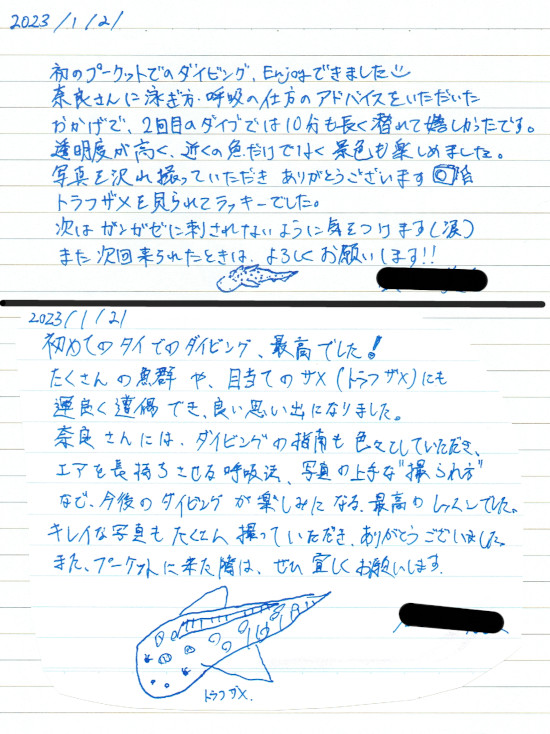 2023/1/21
初のプーケットでのダイビング、Enjoyできました
奈良さんに泳ぎ方・呼吸の仕方のアドバイスをいただいた
おかげで、2回目のダイブでは10分も長く潜れて嬉しかったです。
透明度が高く、近くの魚だけでなく景色も楽しめました。
写真を沢山撮っていただきありがとうございます
トラフザメを見られてラッキーでした。
次はガンガゼに刺されないように気をつけます(涙)
また次回来られたときは、よろしくお願いします!!
2023/1/21
初めてのタイでのダイビング、最高でした!
たくさんの魚群や、目当てのサメ(トラフザメ)にも
運良く遭遇でき、良い思い出になりました。
奈良さんには、ダイビングの指南も色々としていただき、
エアを長持ちさせる呼吸法、写真の上手な"撮られ方"
など、今後のダイビングが楽しみになる、最高のレッスンでした。
キレイな写真もたくさん撮っていただき、ありがとうございました。
また、プーケットに来た際は、ぜひ宜しくお願いします。
トラフザメ.